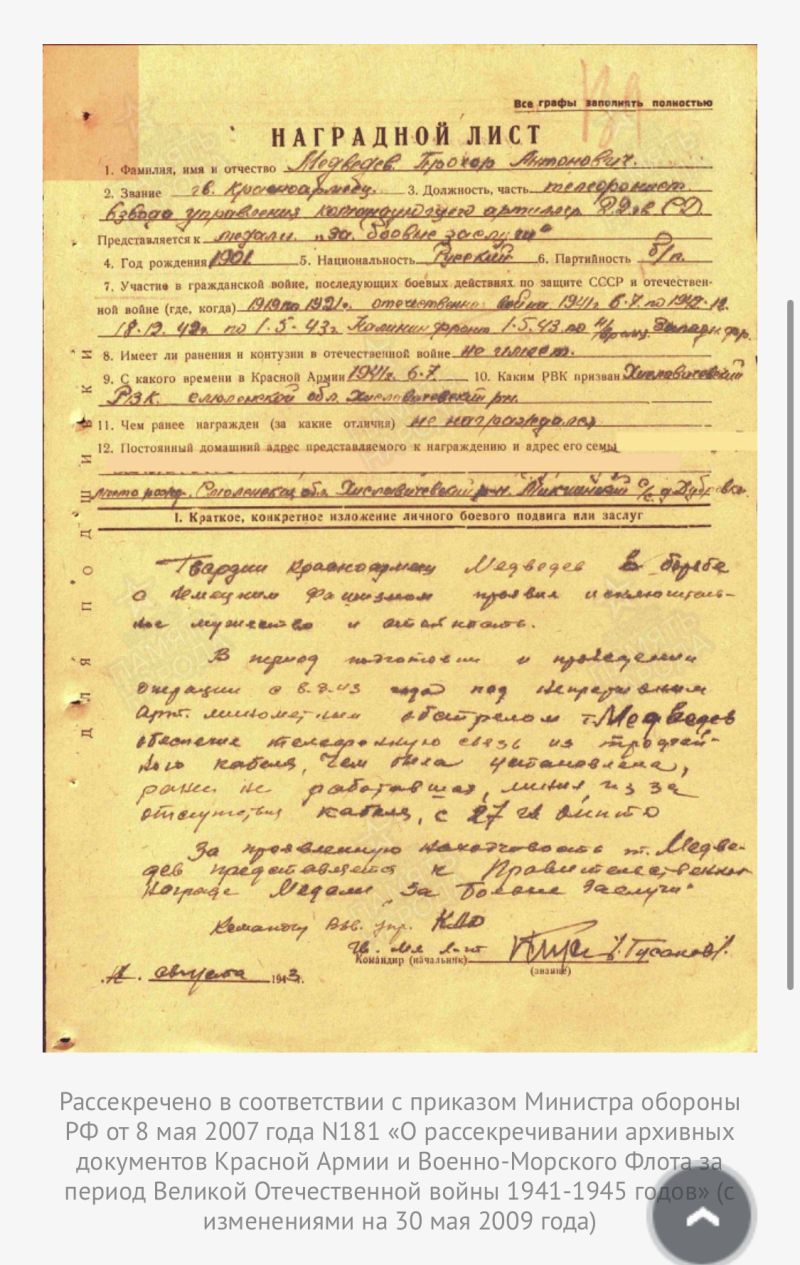 Все графы заполнять полностью
НАГРАДНОЙ ЛИСТ
1. Фамилия, имя и отчество Медведев Прохор Антонович.
2. Звание гв. Красноармеец. 3. Должность, часть телефонист
взвода управления командующего артиллер. СД
Представляется к медали „за боевые заслуги“
4. Год рождения 1901 5. Национальность Русский 6. Партийность б/п.
7. Участие в гражданской войне, последующих боевых действиях по защите СССР и отечествен-
ной войне (где, когда) 1919 по 1921г. отечественно война 1941г 6.7. по
18.12.42г по 1.5-43г Калинин фронт 1.5.43 по Западн. фр.
8. Имеет ли ранения и контузии в отечественной войне не имеет.
9. С какого времени в Красной Армии 1941г 6.7 10. Каким РВК призван Хиславичевский
РВК. Смоленской обл. Хиславичевский рн.
11. Чем ранее награжден (за какие отличия) не награждался
12. Постоянный домашний адрес представляемого к награждению и адрес его семьи
место рожд. Смоленская обл. Хиславичевский р-н. с/с д. Дубровка.
I. Краткое, конкретное изложение личного боевого подвига или заслуг
Гвардии красноармеец Медведев в борьбе
с немецким фашизмом проявил исключитель-
ное мужество и стойкость.
В период подготовки и проведении
операции с 8.43 года под непрерывным
Арт. минометным обстрелом т. Медведев
обеспечил телефонную связь из трофей-
ного кабеля, чем была установлена,
ранее не работавшая, линия из за
отсутствия кабеля, с 27 гв
За проявленную находчивость т. Медве-
дев представляется к Правительственной
Награде Медали „За Боевые Заслуги“
Командир взв. упр. КАД
гв. мл. л-нт /Гусаков/.
Командир (начальник)
(звание)
августа 1943г.
ДЛЯ ПОДШИВКИ
Рассекречено в соответствии с приказом Министра обороны
РФ от 8 мая 2007 года N181 «О рассекречивании архивных
документов Красной Армии и Военно-Морского Флота за
период Великой Отечественной войны 1941-1945 годов» (с
изменениями на 30 мая 2009 года)